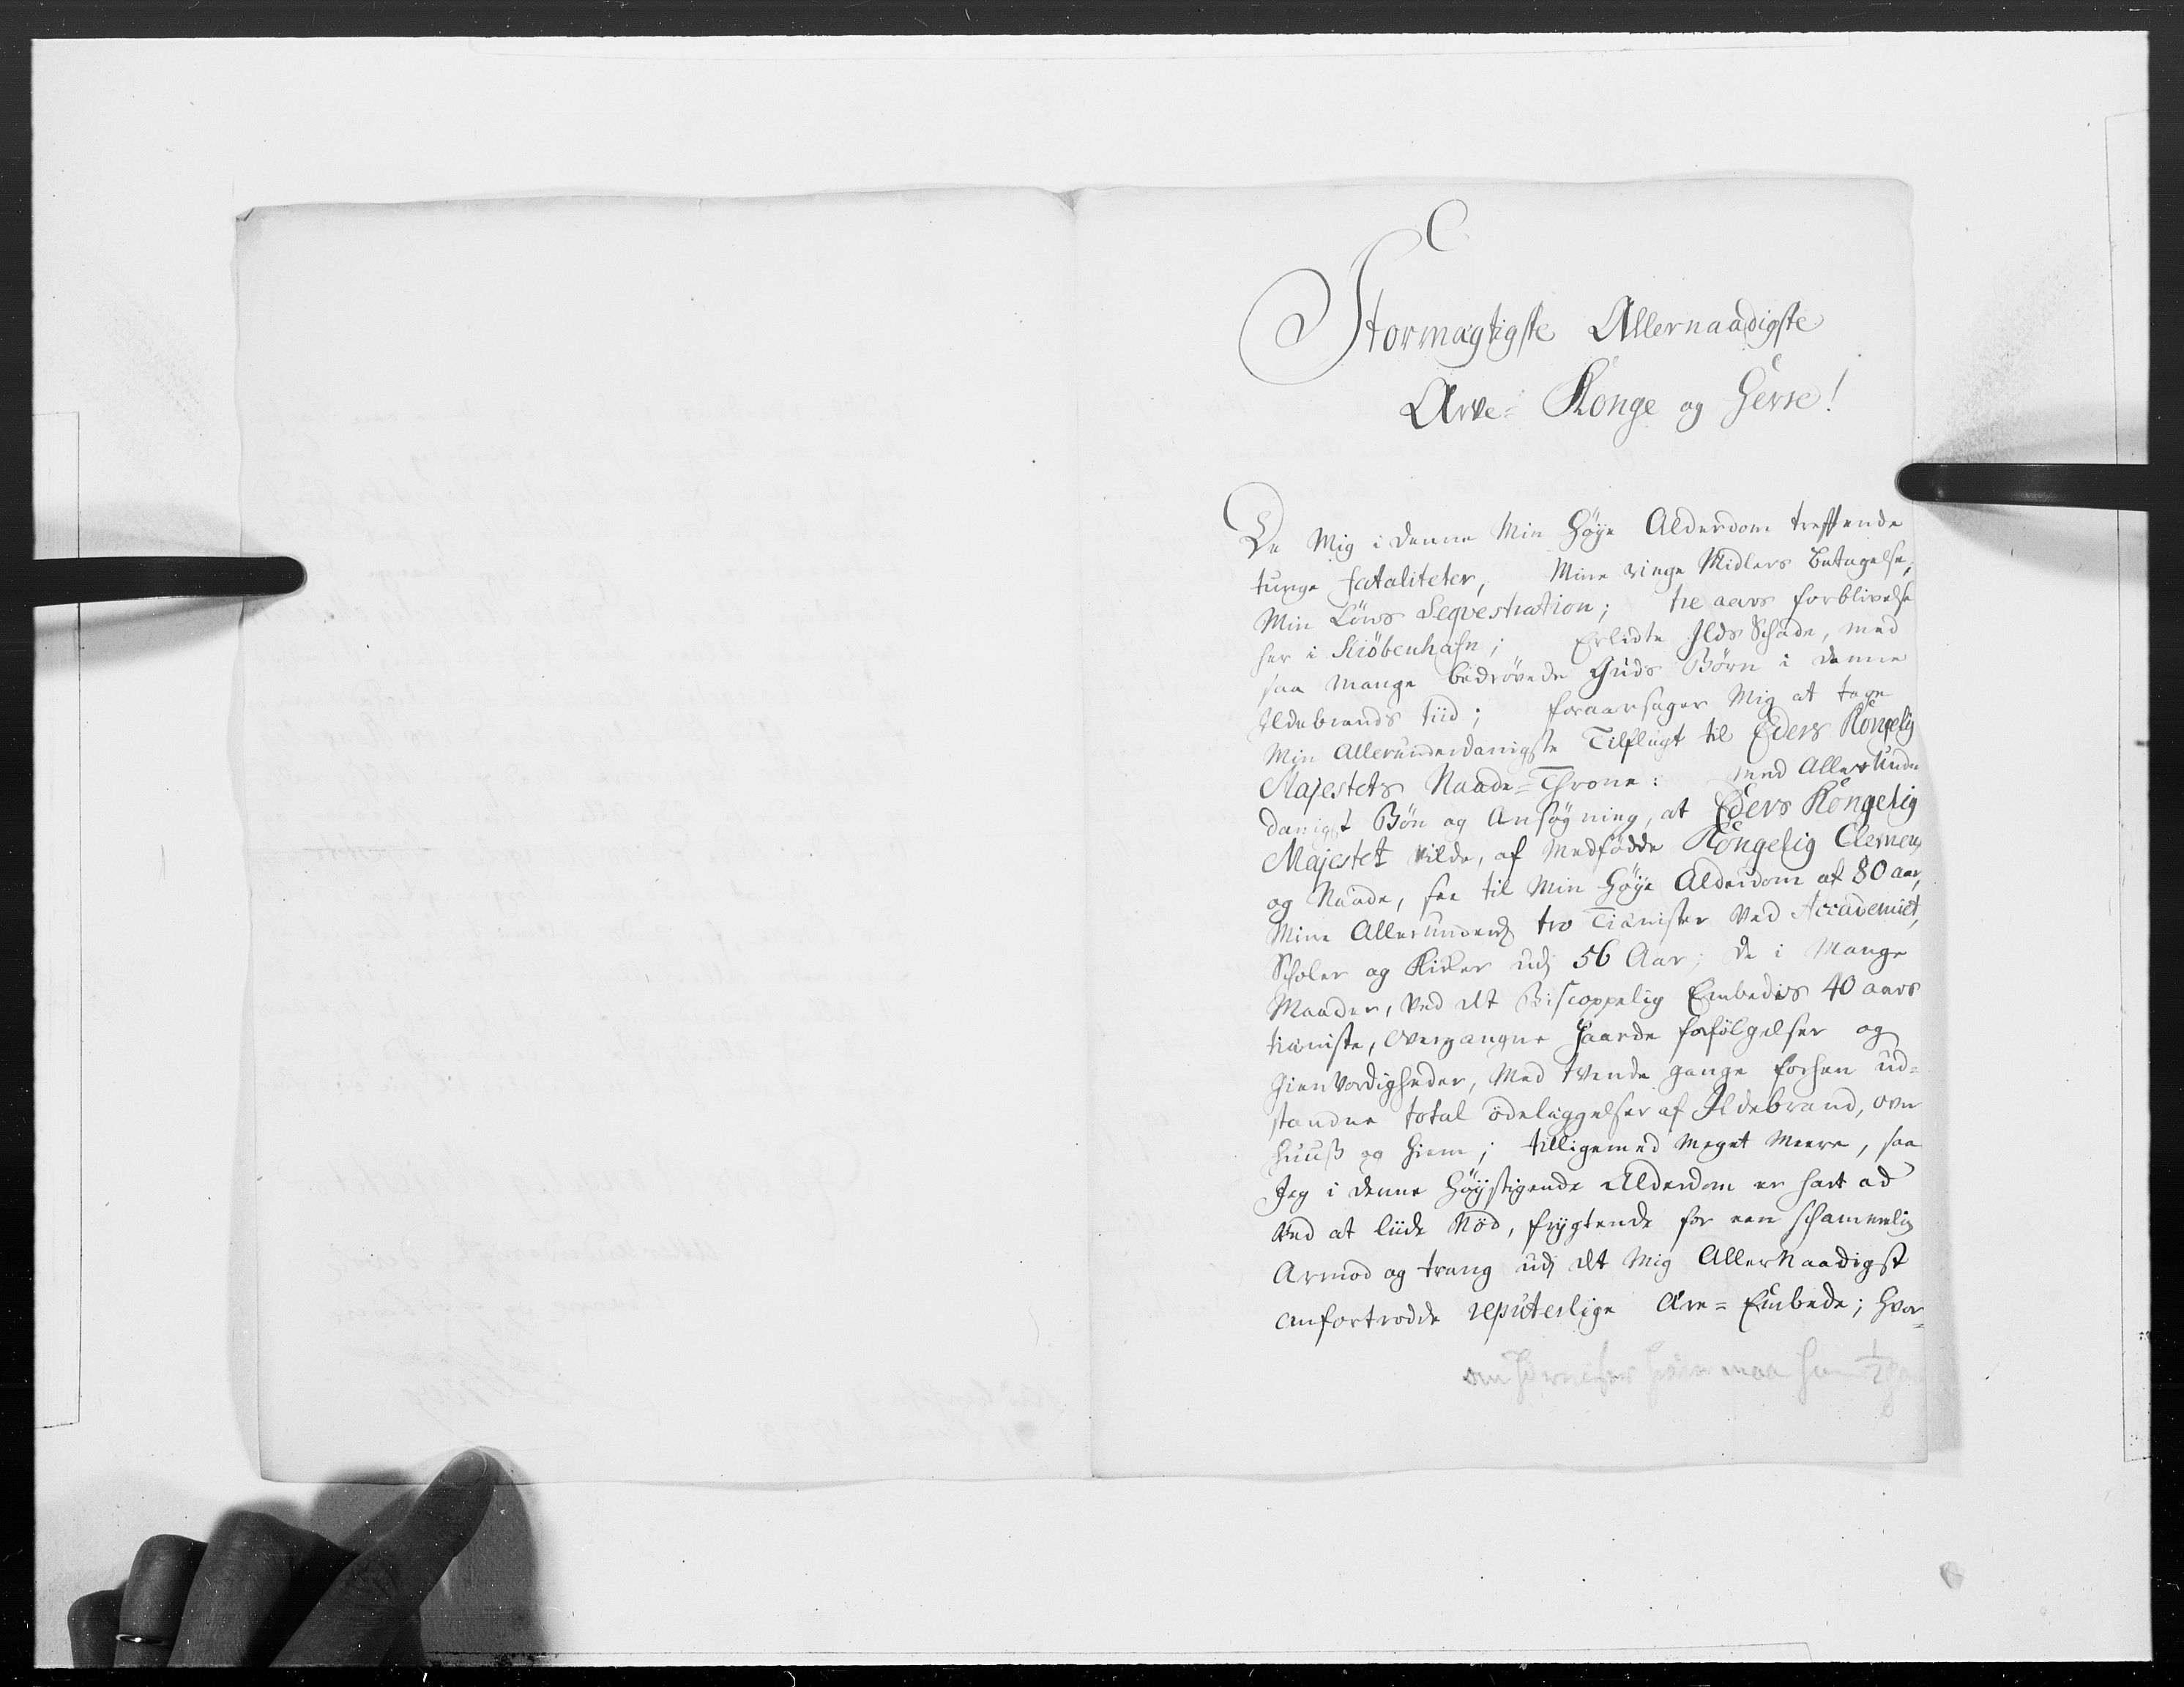 Stormægtigste Allernaadigste
Arve-Konge og Herre!
De Mig i denne Min Høye Alderdom treffende
tunge fataliteter, Mine ringe Midlers betagelse,
Min Löns Seqvestration; tre aars forblivelse
her i Kiöbenhafn; Erlidte Ilds Schade, med
saa mange bedrövede Guds Börn i denne
Ildebrands tiid; foraarsager Mig at tage
Min Allerunderdanigste Tilflugt til Eders Kongelig
Majestets Naade-Throne: med Allerunder
danigst Bön og Ansögning, at Eders Kongelig
Majestet vilde, af Medfødde Kongelig Clemen
og Naade, see til Min Høye Alderdom af 80 aar,
Mine Allerunderd tro Tienister ved Accademiet,
Scholer og Kirker udj 56 Aar; De i Mange
Maader, ved dt Biscoppelig Embedes 40 aars
tieniste, overgangne haarde forfölgelser og
Gienvordigheder, Med tvende gange forhen ud-
standne total ödelæggelser af Ildebrand, over
Huuß og Hiem; tilligemed Meget Meere, saa
Jeg i denne Høystigende Alderdom er hart ad
ved at liide Nöd, frygtende for een schammelig
Armod og trang udj dt Mig Allernaadigst
anfortrodde reputerlige Ære-Embede; hvor-